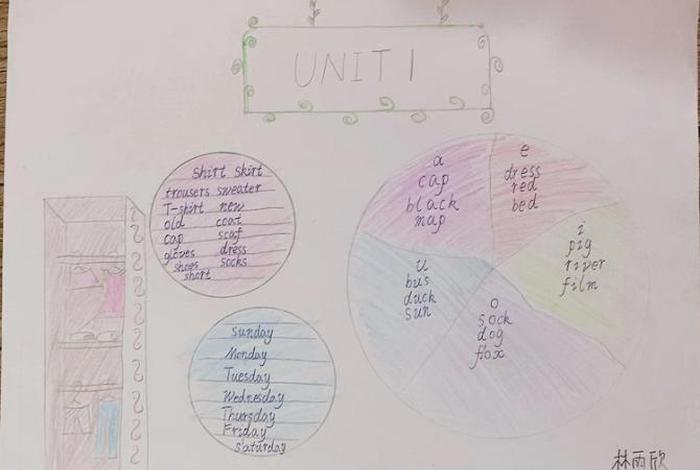 UNIT 1
shirt skirt
trousers sweater
T-shirt new
old coat
cap scaf
gloves dress
shoes socks
short
Sunday
Monday
Tuesday
Wednesday
Thursday
Friday
saturday
a
cap
black
map
e
dress
red
bed
i
pig
river
film
u
bus
duck
sun
o
sock
dog
fox
林雨欣